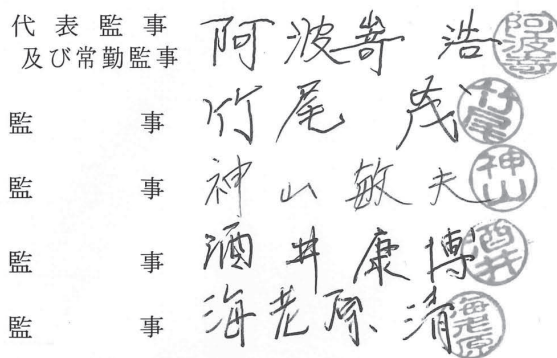 代表監事
及び常勤監事 阿波嵜 浩 阿波嵜
監事 竹尾 茂 竹尾
監事 神山敏夫 神山
監事 酒井康博 酒井
監事 海老原 清 海老原